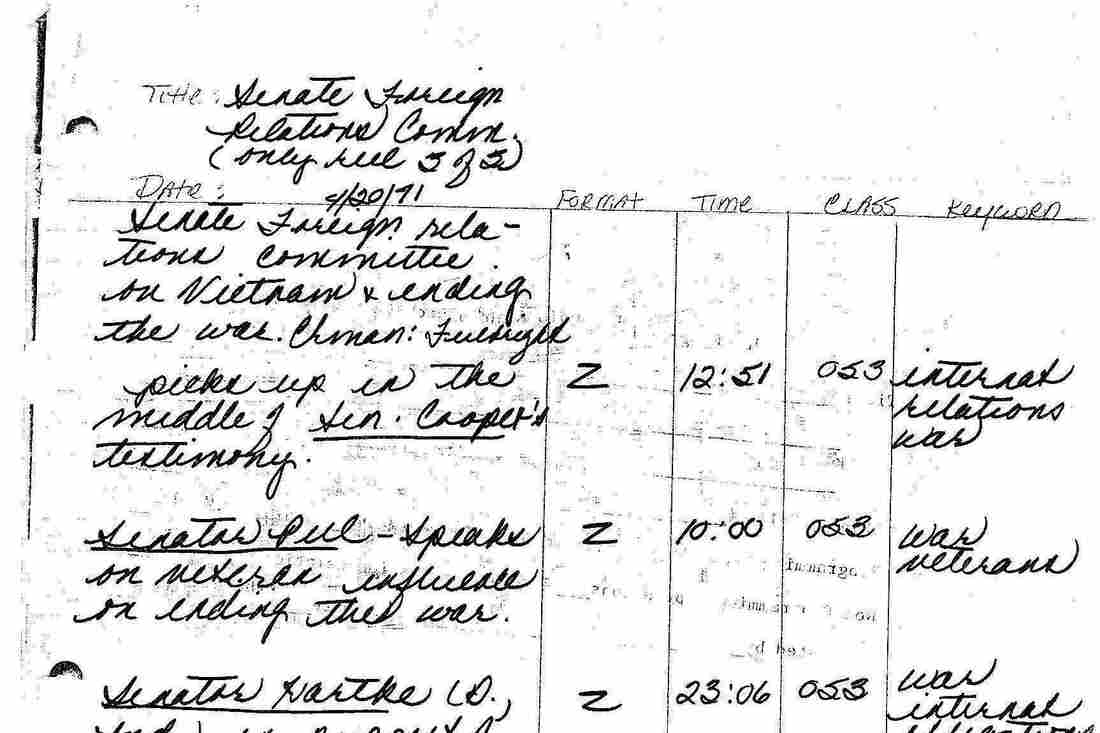 Title: Senate Foreign
Relations Comm.
(only reel 3 of 3)
Date: 4/20/71
FORMAT TIME CLASS Keyword
Senate Foreign rela-
tions committee
on Vietnam & ending
the war. Chman: Fulbright
picks up in the Z 12:51 053 internat
middle of Sen. Cooper's relations
testimony. war
Senator Pell - Speaks Z 10:00 053 war
on veteran influence veterans
on ending the war.
Senator Hartke (D., Z 23:06 053 war
internat